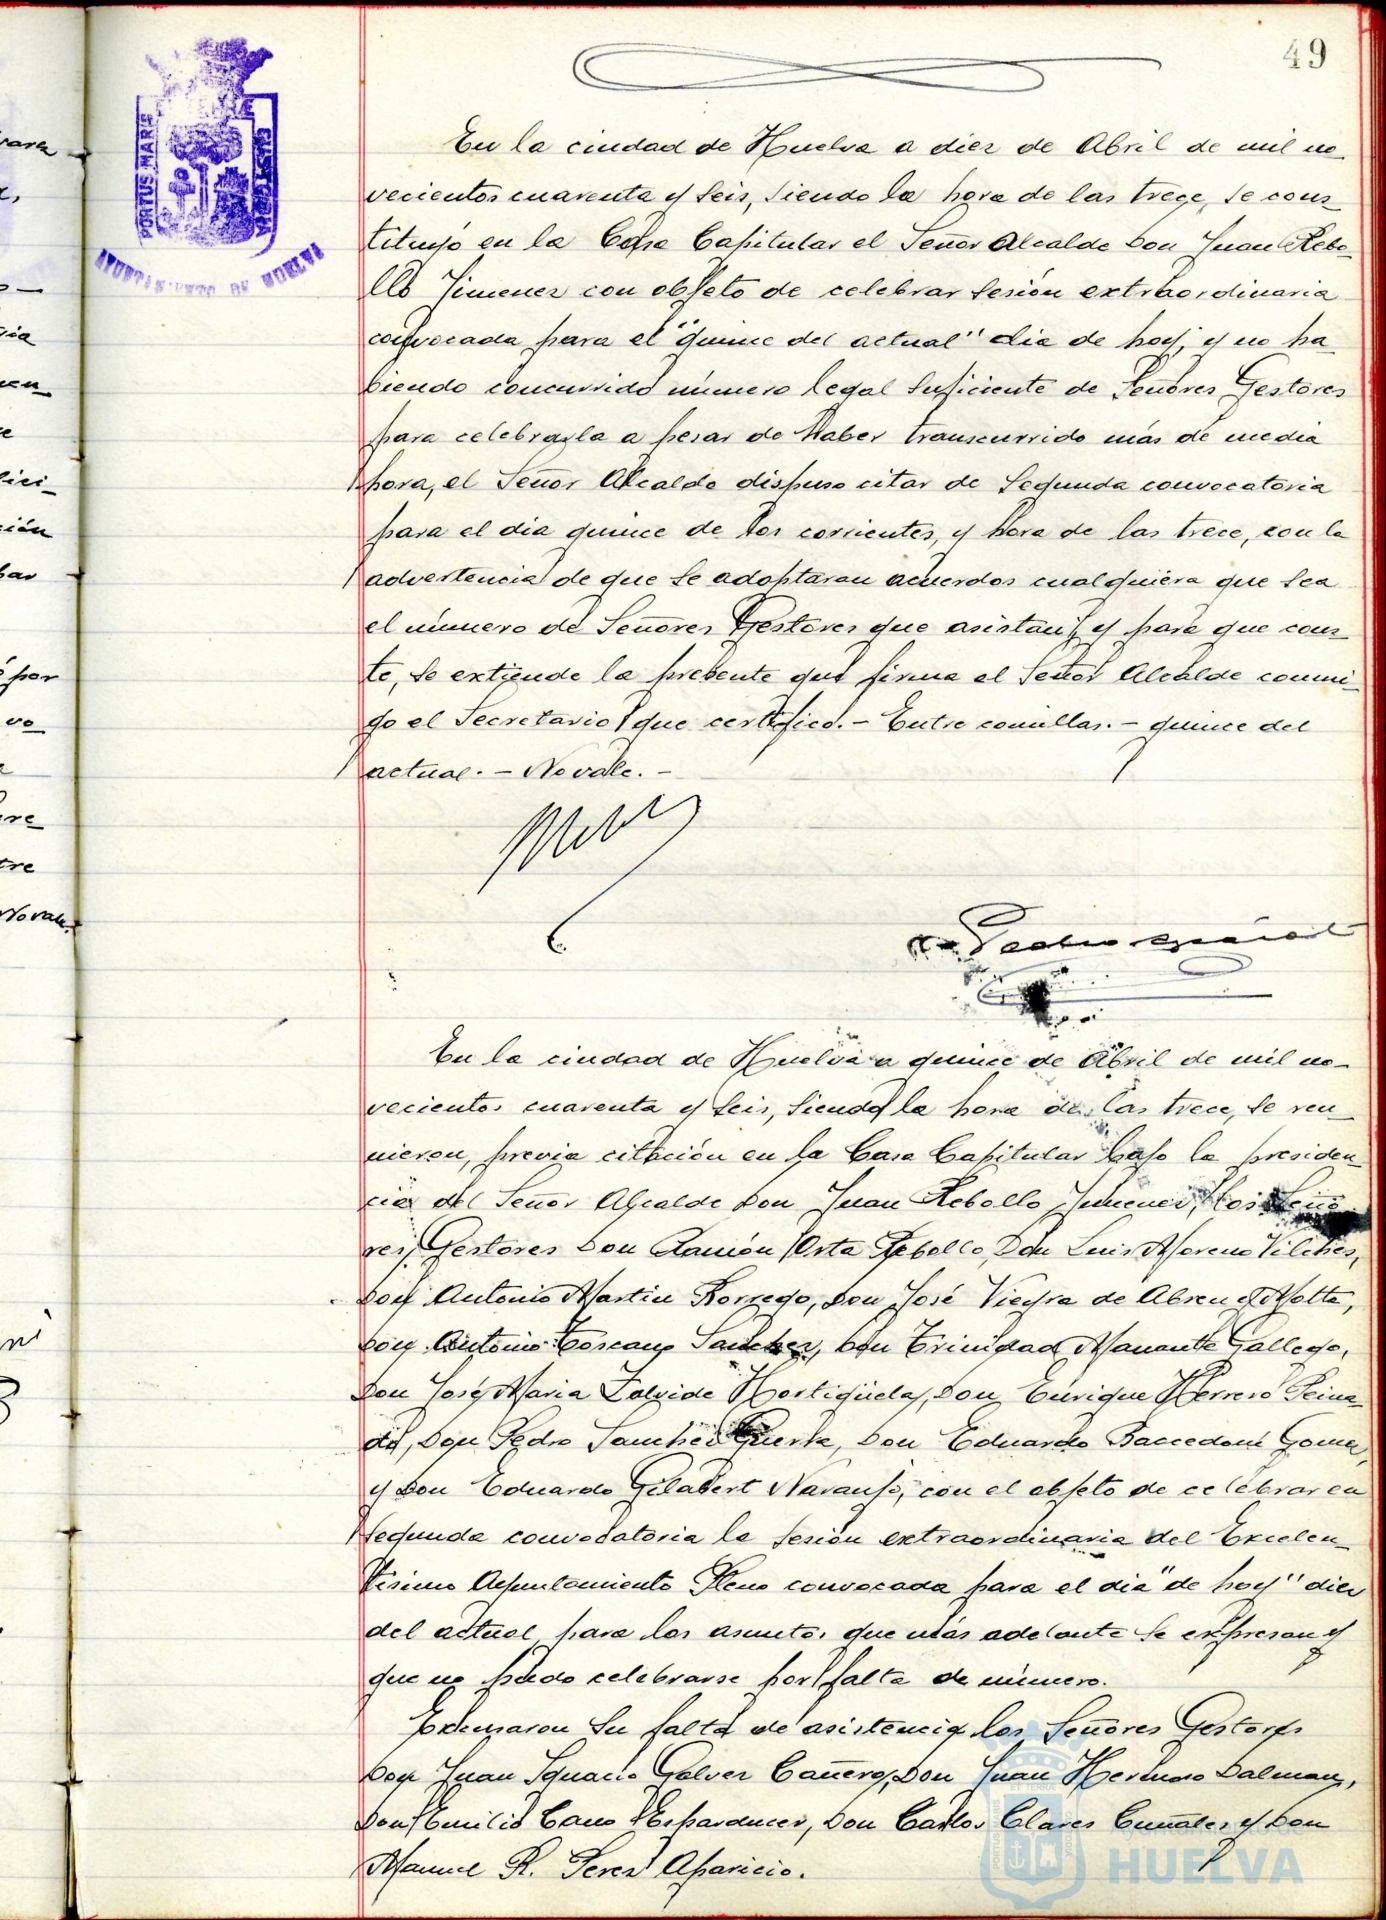 49
PORTUS MARIS
AYUNTAMIENTO DE HUELVA
En la ciudad de Huelva a diez de Abril de mil no-
vecientos cuarenta y seis, siendo la hora de las trece, se cons-
tituyó en la Casa Capitular el Señor Alcalde Don Juan Rebo-
llo Jimenez con objeto de celebrar sesión extraordinaria
convocada para el "quince del actual" dia de hoy, y no ha-
biendo concurrido número legal suficiente de Señores Gestores
para celebrarla a pesar de haber transcurrido más de media
hora, el Señor Alcalde dispuso citar de segunda convocatoria
para el dia quince de los corrientes, y hora de las trece, con la
advertencia de que se adoptaran acuerdos cualquiera que sea
el número de Señores Gestores que asistan, y para que cons-
te, se extiende la presente que firma el Señor Alcalde conmi-
go el Secretario que certifico.- Entre comillas.- quince del
actual.- No vale.-
En la ciudad de Huelva a quince de Abril de mil no-
vecientos cuarenta y seis, siendo la hora de las trece, se reu-
nieron, previa citación en la Casa Capitular bajo la presiden-
cia del Señor Alcalde Don Juan Rebollo Jimenez, los Seño-
res Gestores Don Ramón Orta Rebollo, Don Luis Moreno Vilches,
Don Antonio Martin Borrego, Don José Vieyra de Abreu y Motta,
Don Antonio Toscano Sanchez, Don Trinidad Manante Gallego,
Don José Maria Zalvide Hortigüela, Don Enrique Herrero Peina-
do, Don Pedro Sanchez Guerta, Don Eduardo Baccedoni Gomez,
y Don Eduardo Gilabert Naranjo, con el objeto de celebrar en
segunda convocatoria la sesión extraordinaria del Excelen-
tisimo Ayuntamiento Pleno convocada para el dia "de hoy" diez
del actual para los asuntos que más adelante se expresan y
que no pudo celebrarse por falta de número.
Excusaron su falta de asistencia los Señores Gestores
Don Juan Ignacio Galvez Cañero, Don Juan Hermoso Dalman,
Don Emilio Cano Esparducer, Don Carlos Clares Cuñales y Don
Manuel R. Perez Aparicio.
Ayuntamiento de
HUELVA